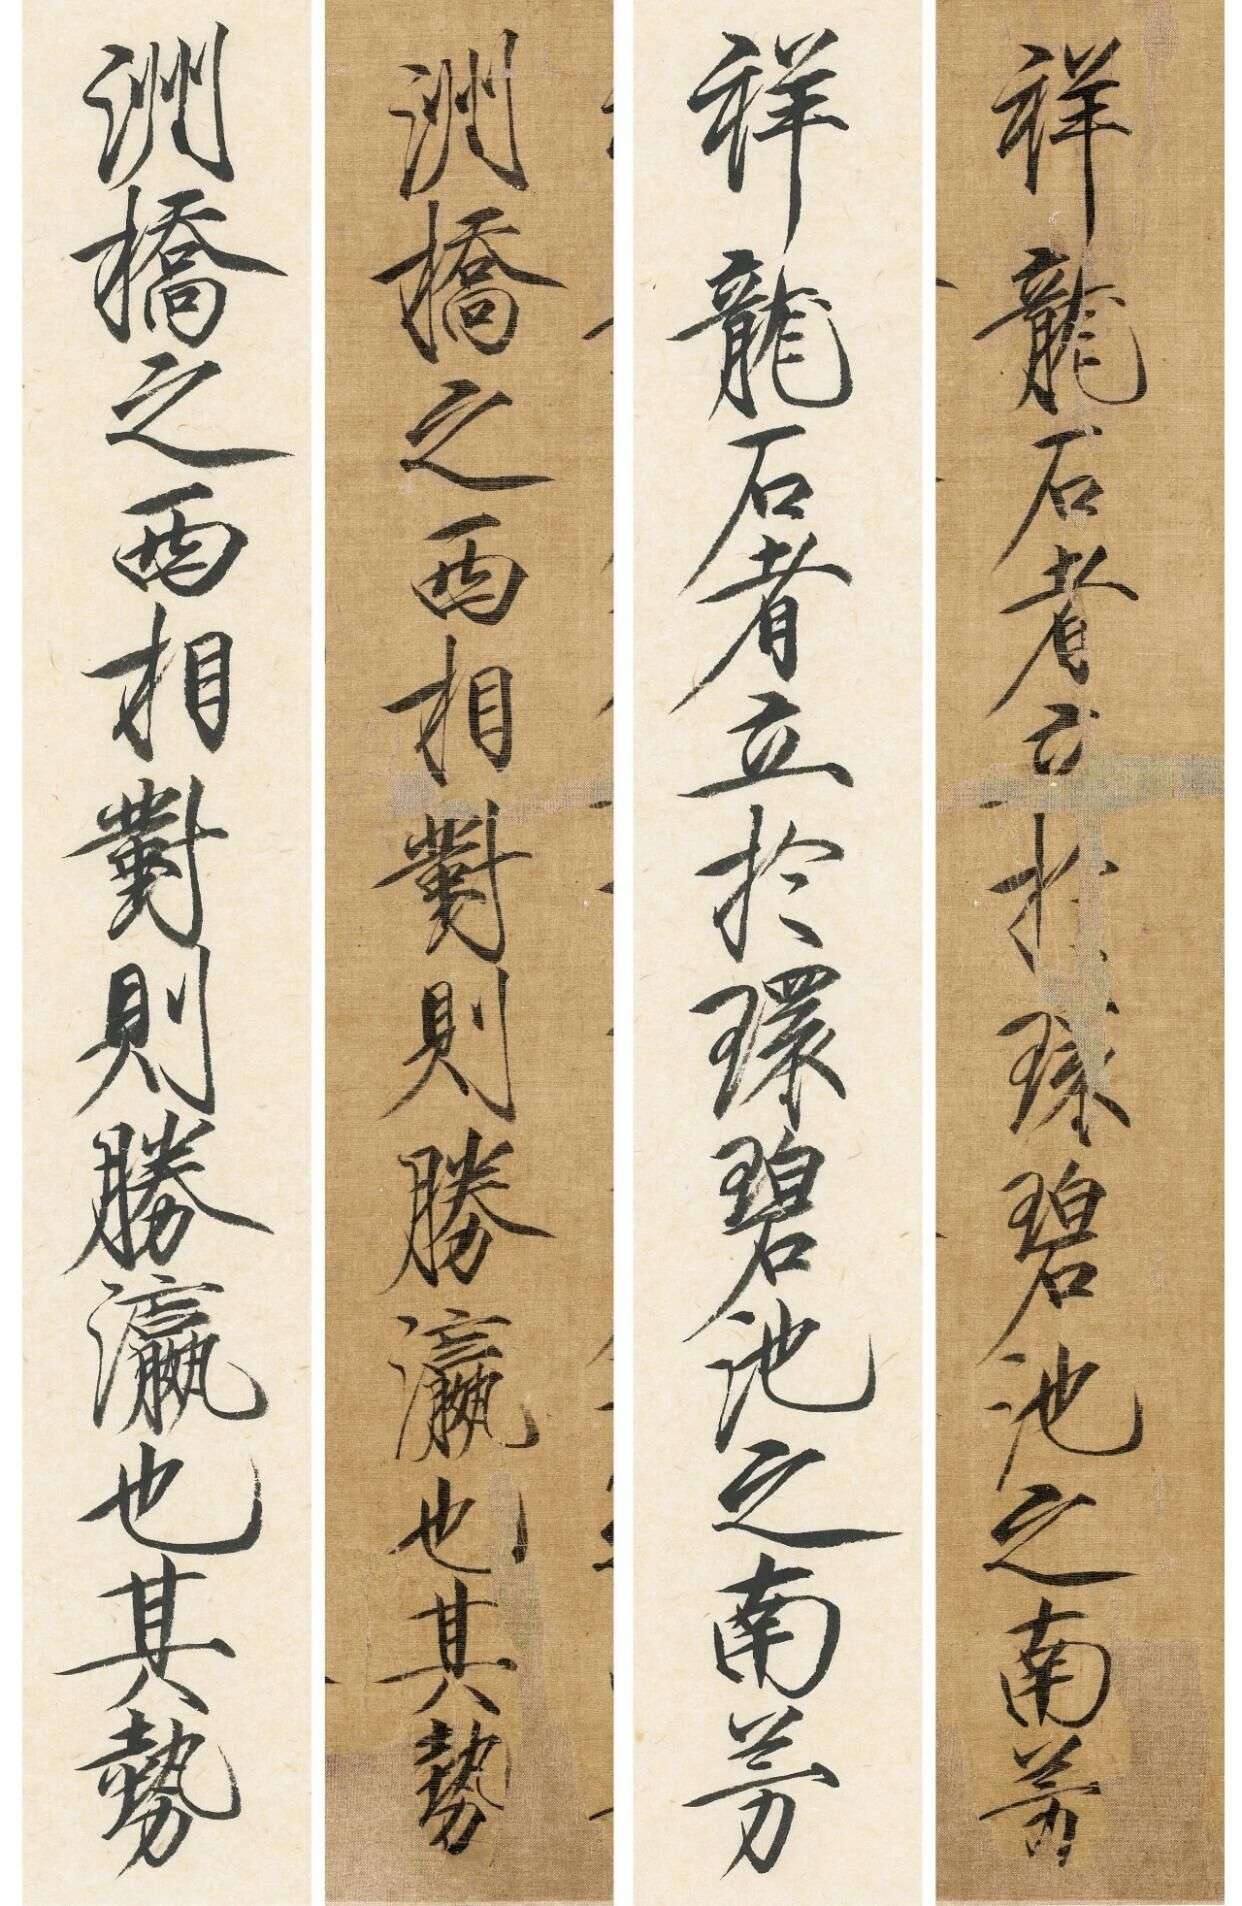 祥龍石者立於環碧池之南芳
祥龍石者立於環碧池之南芳
洲橋之西相對則勝瀛也其勢
洲橋之西相對則勝瀛也其勢